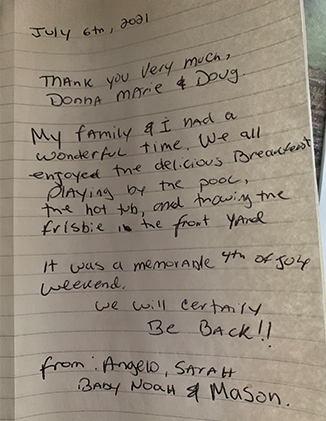 July 6th, 2021
Thank you very much,
Donna Marie & Doug.
My family & I had a
wonderful time. We all
enjoyed the delicious Breakfast
playing by the pool,
the hot tub, and thowing the
frisbie in the front yard
It was a memorable 4th of July
weekend.
we will certainly
Be Back!!
from: Angelo, Sarah
Baby Noah & Mason.